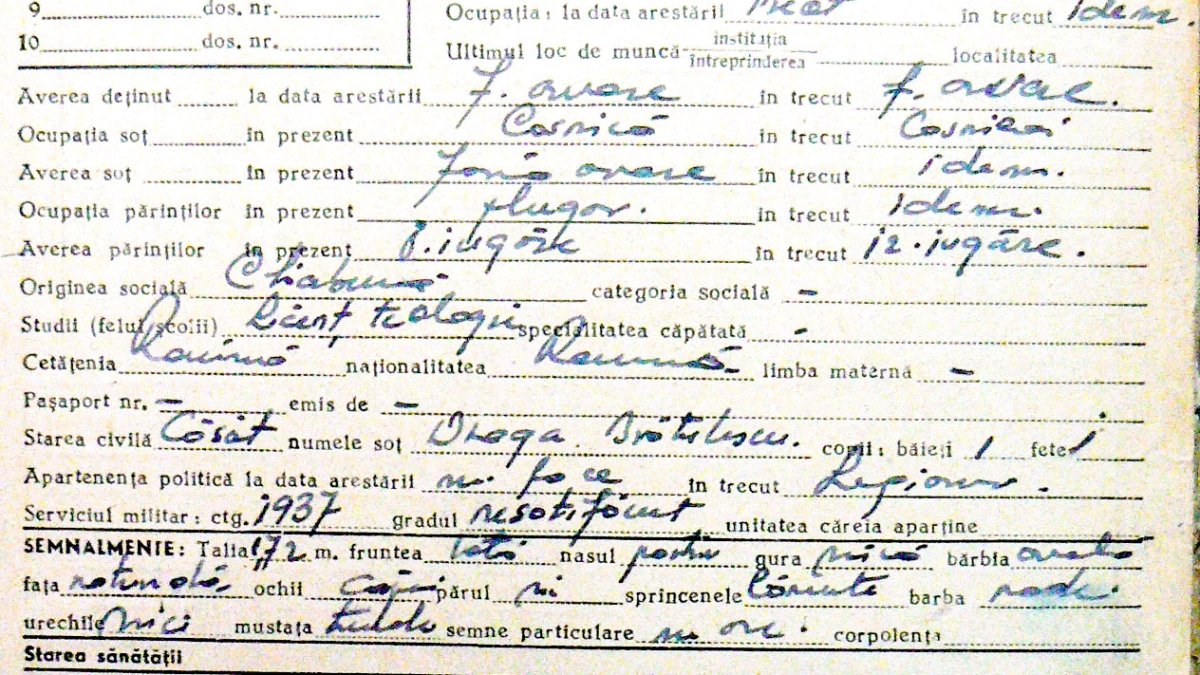 9 dos. nr.
Ocupația: la data arestării Preot în trecut idem.
10 dos. nr.
Ultimul loc de muncă instituția întreprinderea localitatea
Averea deținut la data arestării f. avere în trecut f. avere.
Ocupația soț în prezent Casnică în trecut Casnică
Averea soț în prezent fără avere în trecut idem.
Ocupația părinților în prezent plugar. în trecut idem.
Averea părinților în prezent 8. iugăre în trecut 12. iugăre.
Originea socială Chiabură categoria socială -
Studii (felul școlii) Licenț teologie specialitatea căpătată -
Cetățenia Română naționalitatea Română limba maternă -
Pașaport nr. - emis de -
Starea civilă Căsăt numele soț Draga Brătulescu. copii: băieți 1 fete 1
Apartenența politică la data arestării nu face în trecut Legionar.
Serviciul militar: ctg. 1937 gradul nesatisfăcut unitatea căreia aparține
SEMNALMENTE: Talia 172 m. fruntea lată nasul potriv gura mică bărbia ovală
fața rotundă ochii căprui părul sprincenele cărunte barba rade
urechile Mici mustața tunde semne particulare nu are. corpolența
Starea sănătății